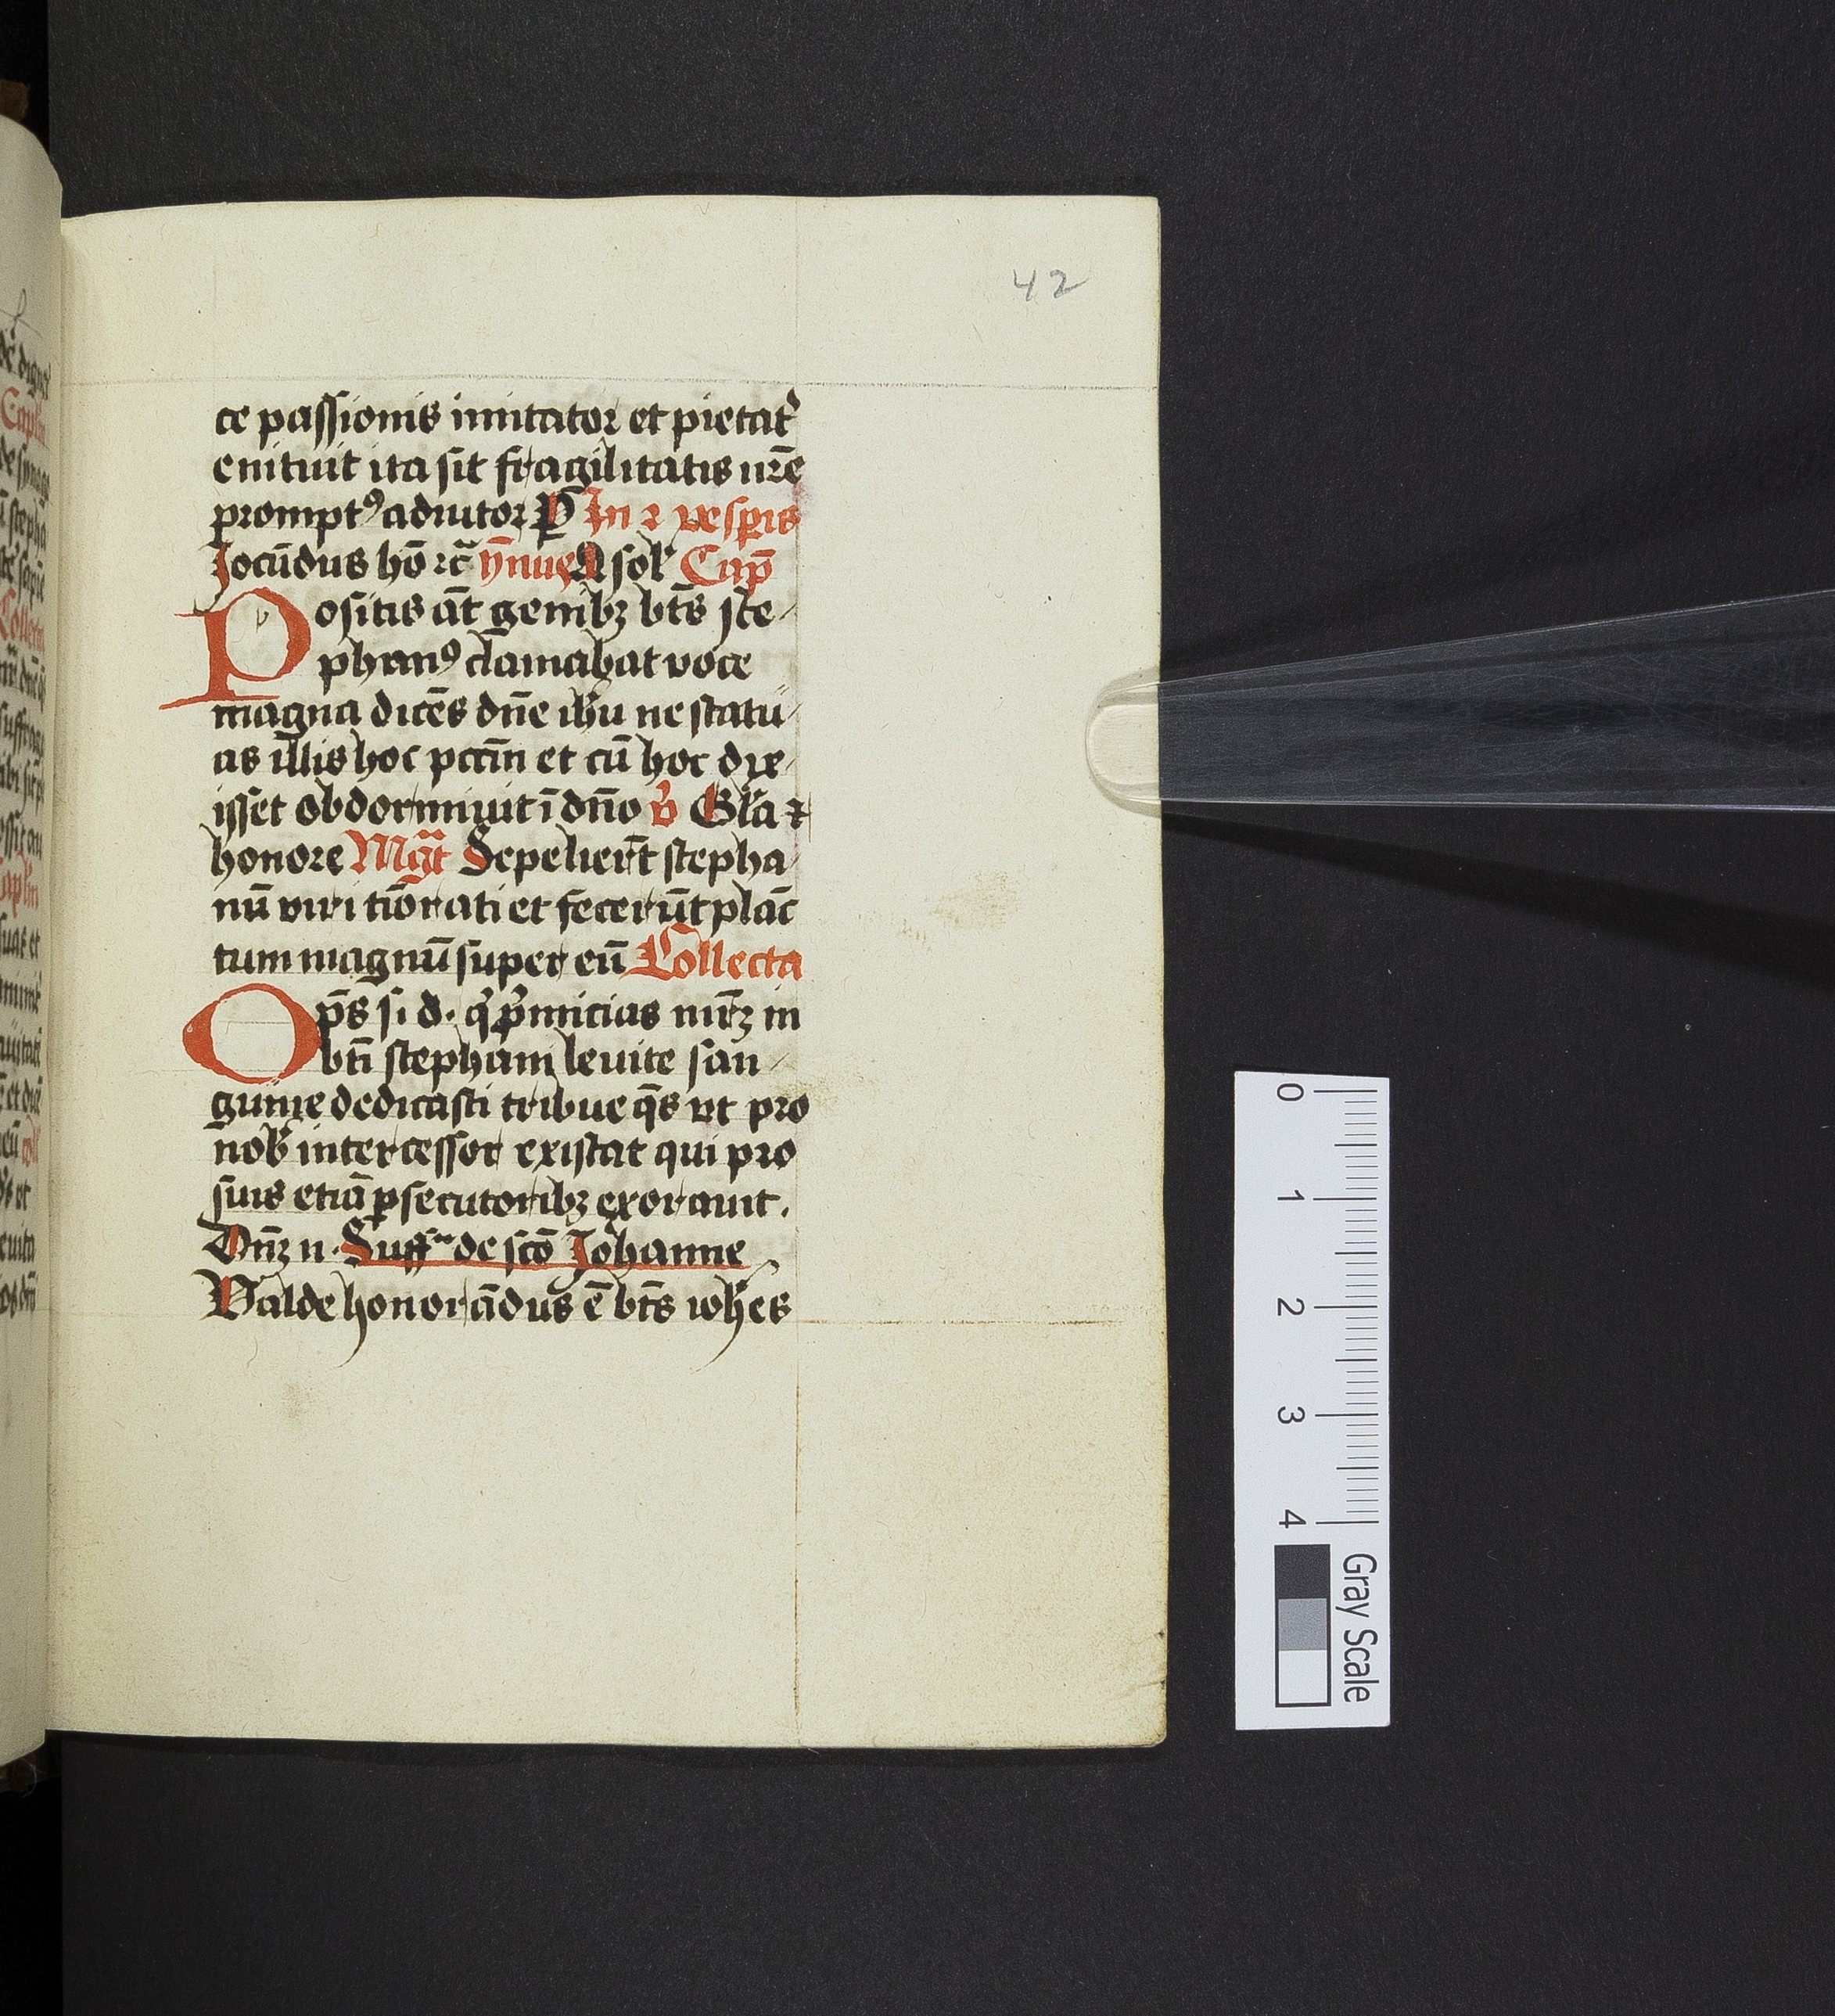 42
ce passionis imitator et pietat᷒
enituit ita sit fragilitatis nr̄e
prompt⁹ adiutor ꝑ In 2 vesp̄is
Jocūdus hō ꝛc̄ ȳnus A sol᷒ Cap̄
Positis āt genibꝫ bt̄s ste⸗
phan⁹ clamabat voce
magna dicēs dn̄e ihū ne statu⸗
as illis hoc pctm̄ et cū hoc dix⸗
isset obdormiuit ī dn̄o v̄ Gl̄a ⁊
honore Mgt̄ Sepelierūt stepha⸗
nū viri tiōrati et fecerūt planc
tum magnū super eū Collecta
Op̄s s. d. q̄ p̄micias mr̄ꝫ in
bt̄i stephani leuite san⸗
guine dedicasti tribue q̄s vt pro
nob᷒ intercessor existat qui pro
suis etiā ꝑsecutoribꝫ exorauit.
Dn̄ꝫ n. Suff᷒ de scō Johanne
Valde honorādus ē bt̄s ioh̄es
0 1 2 3 4
Gray Scale